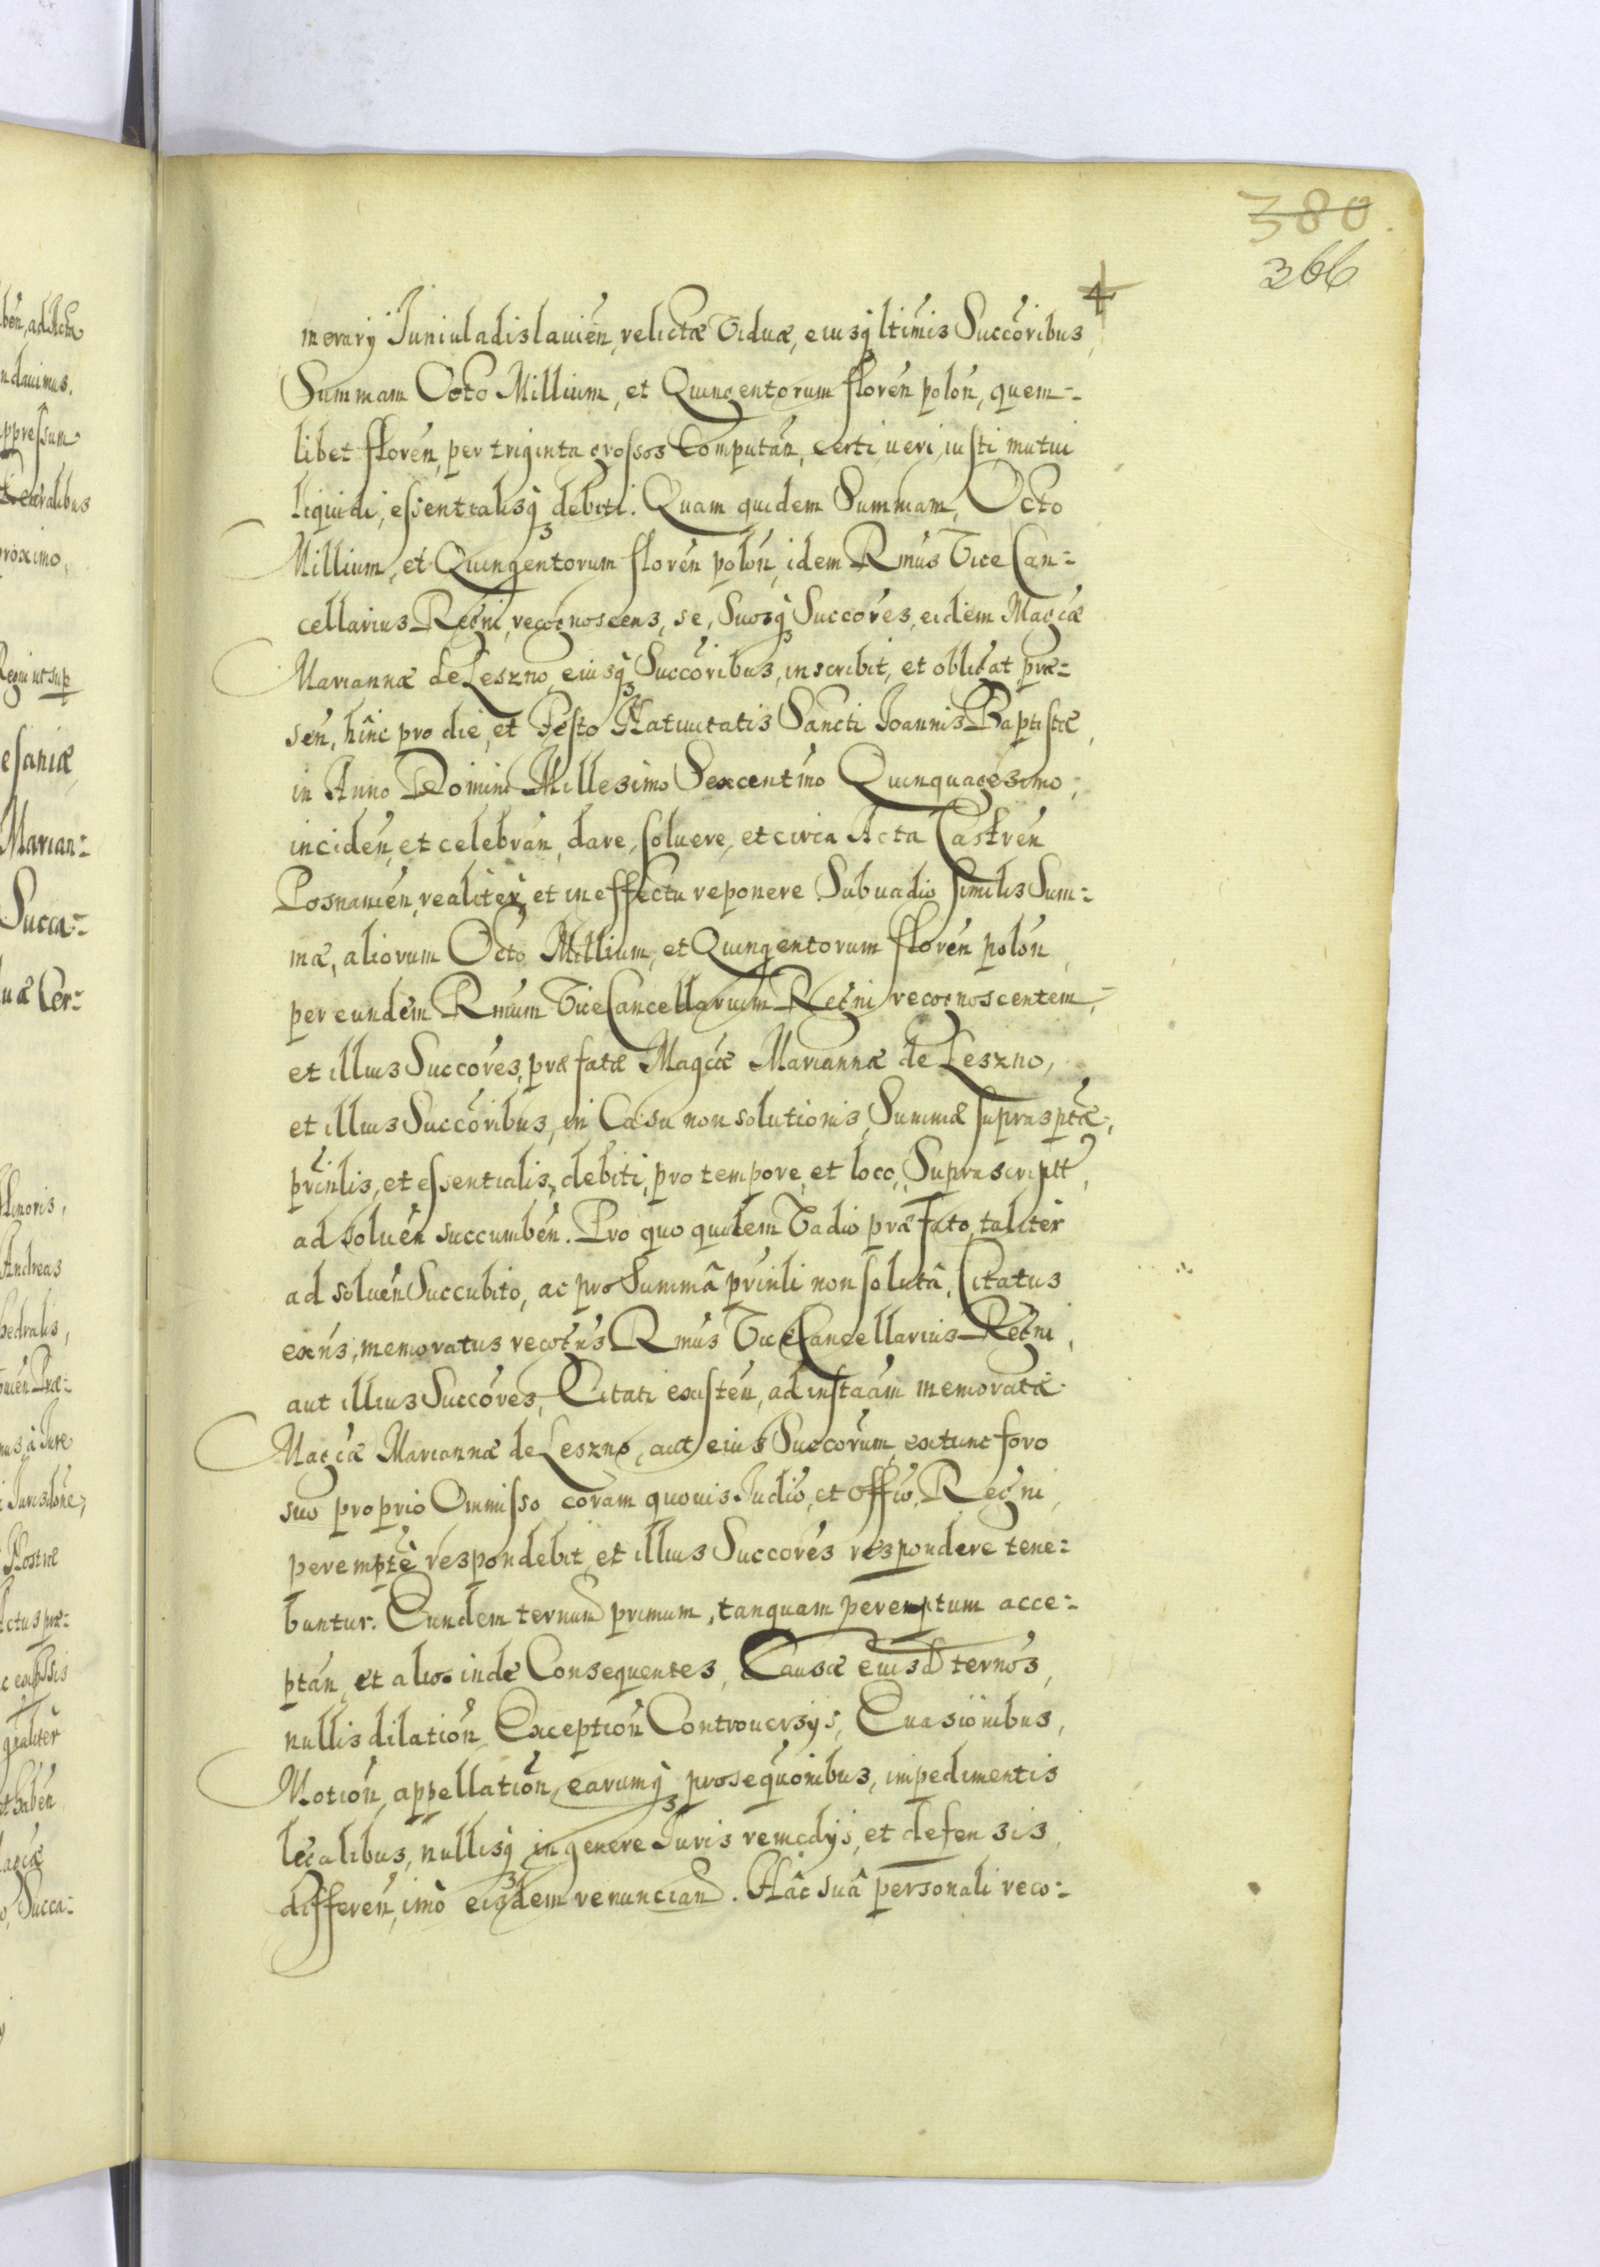 380.
366
4
merarij Juniuladislauień, relictæ Viduæ, eiusq́ ltimis Succoribus,
Summam Octo Millium, et Quingentorum floreń poloń, quem=
libet floreń, per triginta grossos Computań, certi ueri, iusti mutui
liquidi, essentialisq́ debiti. Quam quidem Summam, Octo
Millium, et Quingentorum floreń poloń, idem Rmus Vice Can=
cellarius Regni, recognoscens, se, Suosq́ Succores, eidem Magcæ
Mariannæ de Leszno, eiusq́ Succoribus, inscribit, et obligat, præ=
seń, hinc pro die, et Festo Natiuitatis Sancti Joannis Baptistæ,
in Anno Domini Millesimo Sexcentmo Quinquagesimo,
incideń, et celebrań, dare, soluere, et circa Acta Castreń
Posnanień, realiter, et in effectu reponere Sub uadio similis Sum=
mæ, aliorum Octo Millium, et Quingentorum floreń poloń,
per eundem Rmum Vice Cancellarium Regni recognoscentem,
et illius Succores, præfatæ Magcæ Mariannæ de Leszno,
et illius Succoribus, in Casu non solutionis, Summæ suprasptæ,
prinlis, et essentialis, debiti, pro tempore, et loco, Suprascriptt,
ad solueń succumbeń. Pro quo quidem Vadio præfato, taliter
ad solueń Succubito, ac pro Summâ prinli non solutâ, Citatus
exńs, memoratus recogńs Rmus Vice Cancellarius Regni,
aut illius Succores, Citati existeń, ad instaam memoratæ
Magcæ Mariannæ de Leszno, aut eius Succorum, extunc foro
suo proprio Ommisso coram quouis Judio, et Offio, Regni,
perempte respondebit, et illius Succores respondere tene=
buntur. Eundem ternum primum, tanquam peremptum acce=
ptań, et alios inde Consequentes, Causæ eiusd ternos,
nullis dilatioń, Exceptioń Controuersijs, Euasionibus,
Motioń, appellatioń, earumq́ prosequonibus, impedimentis
legalibus, nullisq́ in genere Juris remedijs, et defensis,
differeń, imò eisdem renunciand. Hâc suâ personali reco=